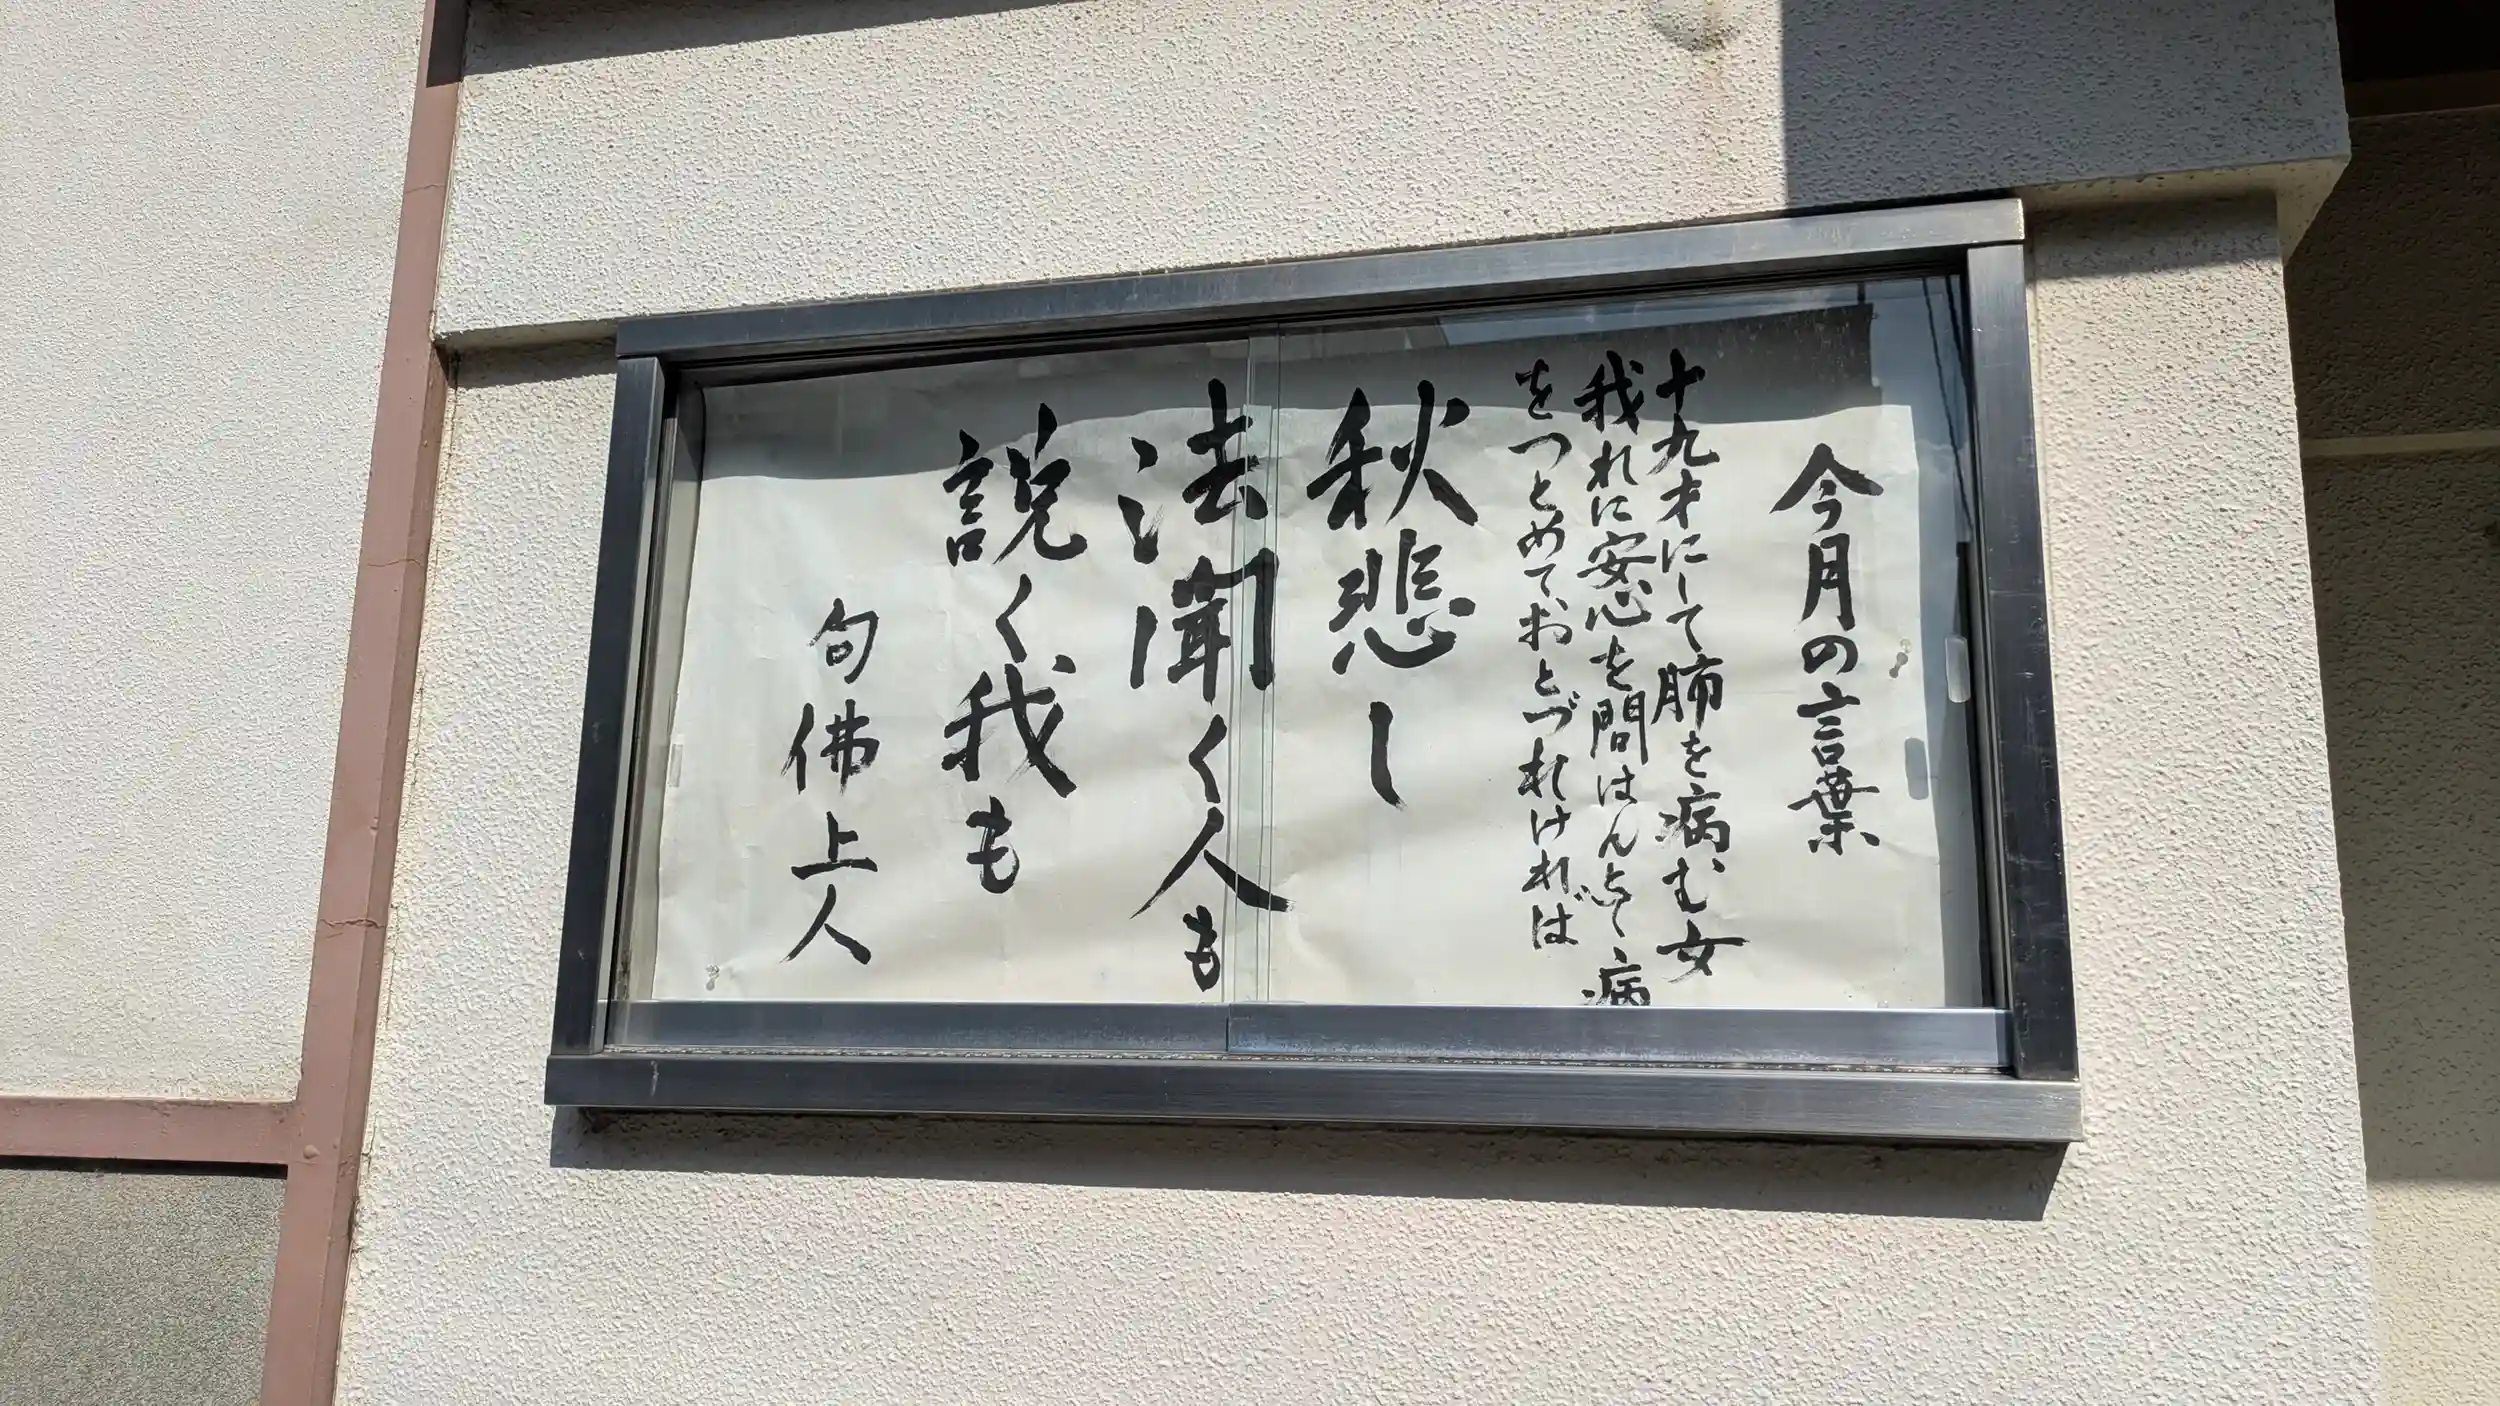 今月の言葉
十九才にして肺を病む女
我れに安心を問はんとて、病
をつとめておとづれければ
秋悲し
法聞く人も
説く我も
句佛上人